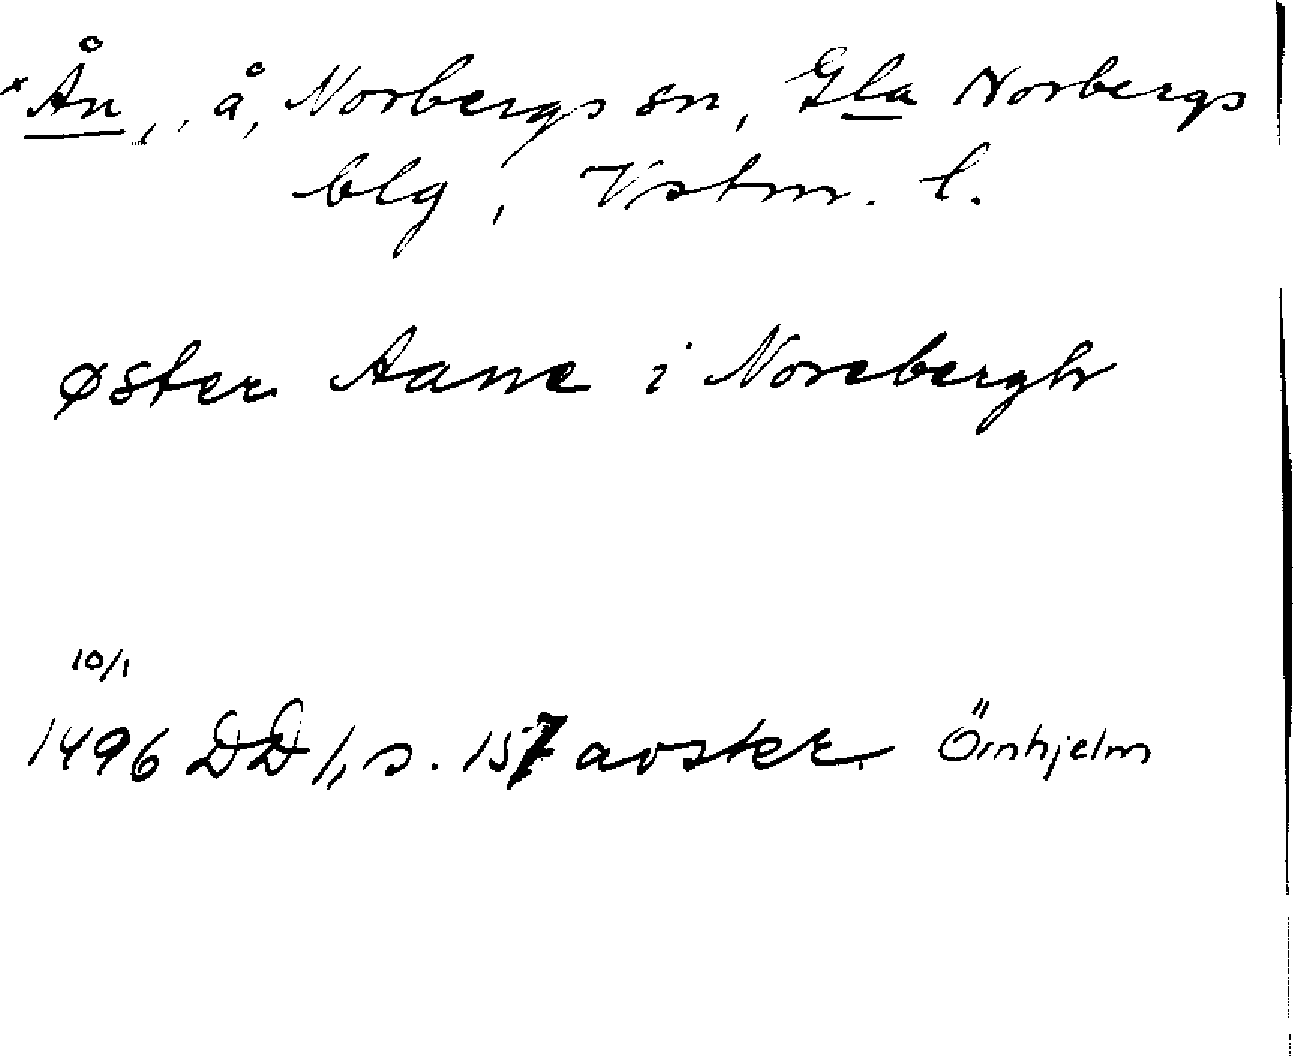 *Ån, , å, Norbergs sn, Gla Norbergs
blg, Vstm. l.
øster Aane i Norebergh
10/1
1496 DD 1, s. 157 avskr. Örnhjelm